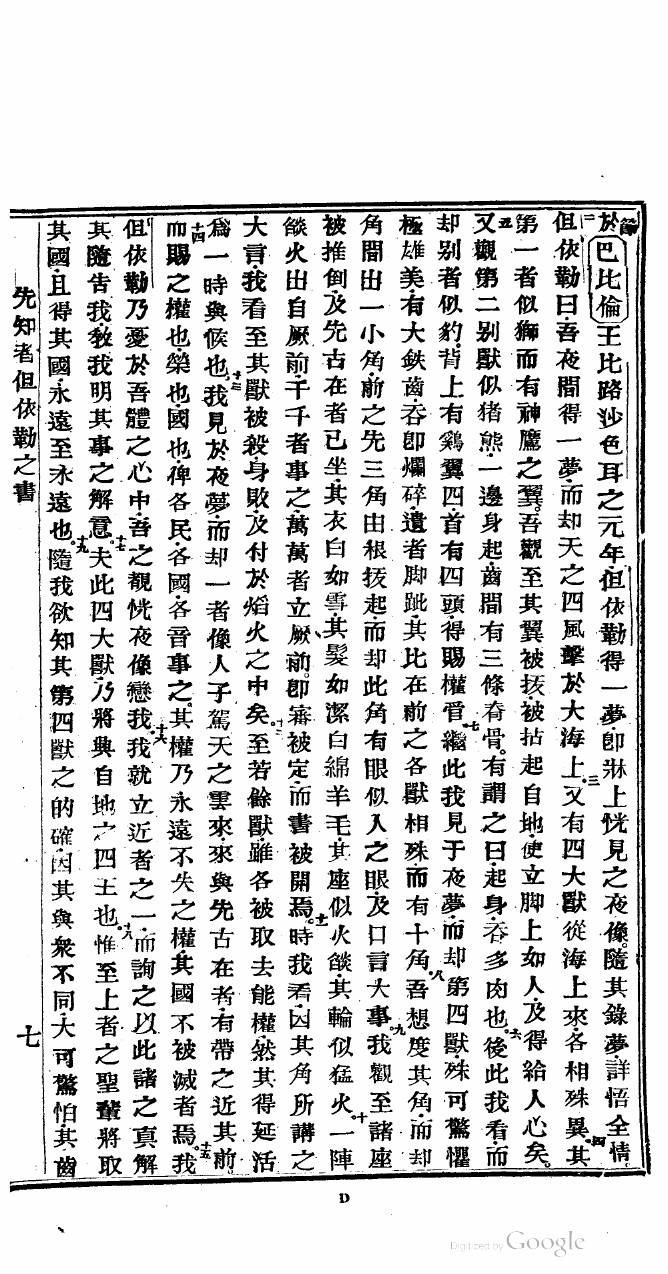 節於巴比倫王比路沙色耳之元年但依勒得一夢即牀上恍見之夜像隨其錄夢詳悟全情
二但依勒曰吾夜間得一夢而却天之四風擊於大海上三又有四大獸從海上來各相殊異四其
第一者似獅而有神鷹之翼吾觀至其翼被拔被拈起自地使立脚上如人及得給人心矣
五又觀第二別獸似猪熊一邊身起齒間有三條脊骨有謂之曰起身吞多肉也六後此我看而
却別者似豹背上有鷄翼四首有四頭得賜權管七繼此我見于夜夢而却第四獸殊可驚懼
極雄美有大鉄齒吞即爛碎遺者脚跐其比在前之各獸相殊而有十角八吾想度其角而却
角間出一小角前之先三角由根拔起而却此角有眼似人之眼及口言大事九我觀至諸座
被推倒及先古在者已坐其衣白如雪其髮如潔白綿羊毛其座似火燄其輪似猛火十一陣
燄火出自厥前千千者事之萬萬者立厥前即審被定而書被開焉十一時我看因其角所講之
大言我看至其獸被殺身敗及付於焰火之中矣十二至若餘獸雖各被取去能權然其得延活
爲一時與候也十三我見於夜夢而却一者像人子駕天之雲來來與先古在者有帶之近其前
十四而賜之權也榮也國也俾各民各國各音事之其權乃永遠不失之權其國不被滅者焉十五我
但依勒乃憂於吾體之心中吾之靚恍夜像戀我十六我就立近者之一而詢之以此諸之真解
其隨告我教我明其事之解意十七夫此四大獸乃將與自地之四王也十八惟至上者之聖輩將取
其國且得其國永遠至永遠也十九隨我欲知其第四獸之的確因其與衆不同大可驚怕其齒
先知者但依勒之書
七
D
Digitized by Google